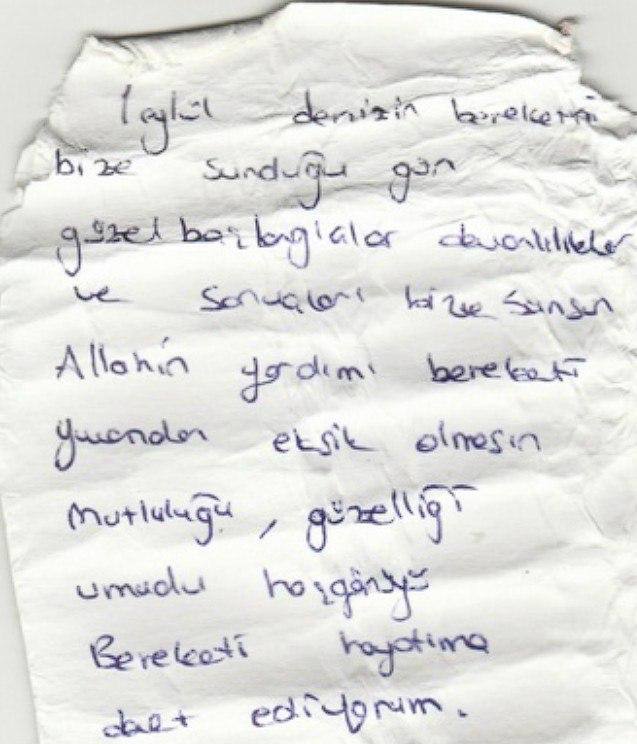 1 eylül denizin bereketini
bize sunduğu gün
güzel başlangıçlar devamlılıklar
ve sonuçları bize sunsun
Allahın yardımı bereketi
yuvandan eksik olmasın
Mutluluğu, güzelliği
umudu hoşgörüyü
Bereketi hayatıma
davet ediyorum.